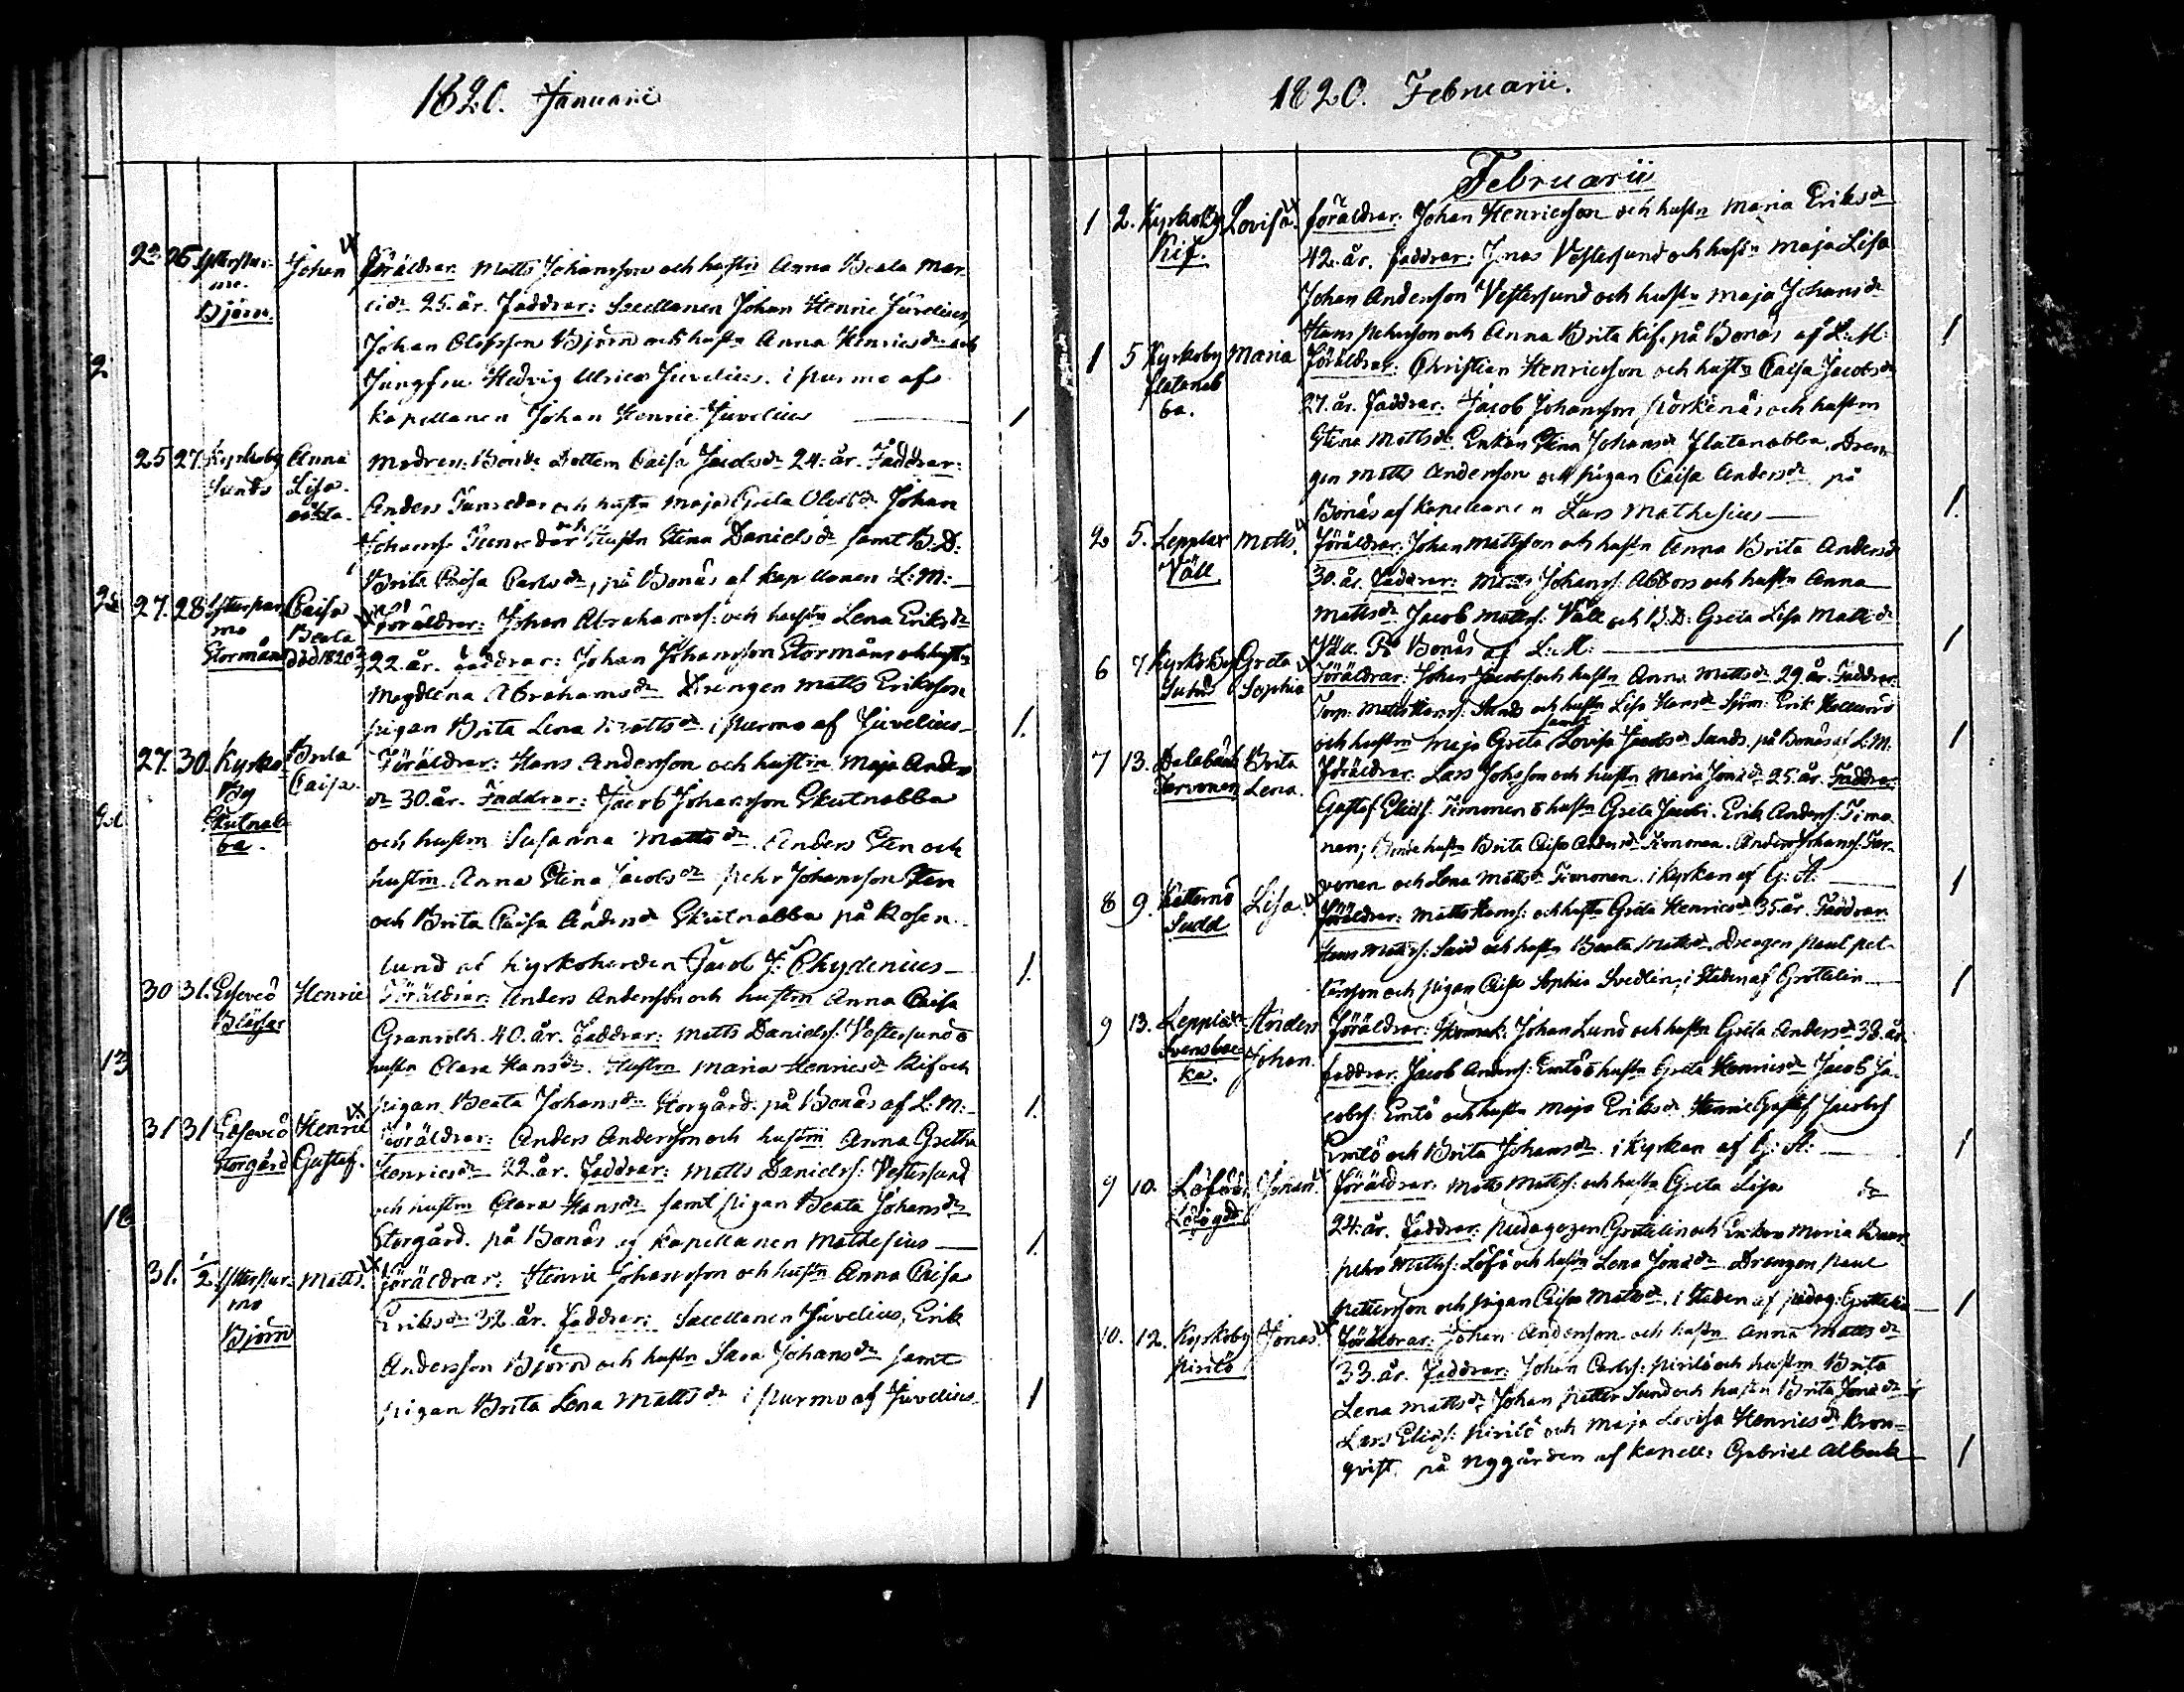 1820. Januarii
Johan Föräldrar: Matts Johansson och hustn Anna Beata Mar-
Björn.
25. år. Faddrar: Sacellanen Johan Henric Juvelius,
Johan Olofsson Björn och hustn Anna Henricsdr och
Jungfru Hedvig Ulrica Juvelius. i purmo af
Kapellanen Johan Henric Juvelius 1
25 27. Kyrkoby Anna Modren: Bonde Dottern Caisa Jacobsdr 24. år. Faddrar:
Sunds Lisa.
oäkta. Anders och hustn Maja Greta Olofsdr Johan
och hustn Stina Danielsdr samt B: D:
Brita Caisa Carlsdr, på Bonäs af Kapellanen L: M:
27. 28 Caisa Föräldrar: Johan Abrahamss: och hustn Lena Eriksdr
mo Beata
Stormåns död 1820 22. år. Faddrar: Johan Johansson Stormåns och hustn
Magdlena Abrahamsdr Drengen Matts Eriksson
pigan Brita Lena Mattsdr. i purmo af Juvelius 1.
27. 30. Kyrko- Brita Föräldrar: Hans Andersson och hustrn Maja Anders
By Caisa. dr 30. år. Faddrar: Jacob Johansson Skutnabba
Skutnab-
ba. och hustrn Susanna Mattsdr Anders Sten och
hustrn Anna Stina Jacobsdr pehr Johansson Sten
och Brita Caisa Andersdr Skutnabba på Rosen-
lund af Kyrkoherden Jacob J: Chydenius 1.
30 31. Esseveö Henric Föräldrar: Anders Andersson och hustrn Anna Caisa
40. år. Faddrar: Matts Danielss: Vestersund o
hustn Clara Hansdr. Hustrn Maria Henricsdr Kif och
pigan Beata Johansdr Storgård. på Bonäs af L: M: 1.
31 31 Esseveö Henric Föräldrar: Anders Andersson och hustrn Anna Gretha
Storgård Gustaf. Henricsdr 22. år. Faddrar: Matts Danielss: Vestersund
och hustrn Clara Hansdr samt pigan Beata Johansdr
Storgård. på Bonäs af Kapellanen Mathesius 1.
31. 1/2 Ytterpur- Matts. Föräldrar: Henric Johansson och hustn Anna Caisa
mo
Eriksdr 32. år. Faddrar: Sacellanen Juvelius, Erik
Björn
Andersson Björn och hustn Sara Johansdr samt
pigan Brita Lena Mattsdr i purmo af Juvelius 1
1820. Februarii.
Februarii
1 2. Kyrkoby Lovisa Föräldrar: Johan Henricsson och hustn Maria Eriksdr
Kif.
42. år. Faddrar: Jonas Vestersund och hustn Maja Lisa
Johan Andersson Vestersund och hustn Maja Johansdr
Hans pehrsson och Anna Brita Kif. på Bonäs af L: M: 1
1 5 Kyrkoby Maria Föräldrar: Christian Henricsson och hustn Caisa Jacobsdr
flatnab-
ba. 27. år. Faddrar: Jacob Johansson och hustrn
Stina Mattsdr Enkan Stina Johansdr Flatnabba. Dren-
gen Matts Andersson och pigan Caisa Andersdr på
Bonäs af Kapellanen Lars Mathesius 1.
2 5. Lepplax Matts. Föräldrar: Johan Mattsson och hustn Anna Brita Andersdr
Väll 30. år. Faddrar: Matts Johanss: Abbors och hustn Anna
Mattsdr Jacob Mattss: Väll och B: D: Greta Lisa Mattsdr
Väll. På Bonäs af L: M: 1
6 7. Kyrkoby Greta Föräldrar: Johan och hustn Anna Mattsdr 29 år. Faddrar:
Sophia Sunds och hustn Lisa Hansdr Erik
och hustrn Maja Greta Lovisa Jacobsdr Sunds. på Bonäs af L: M. 1
7 13. Brita Föräldrar: Lars och hustn Maria 25. år. Faddrar:
Lena. Gustaf Eliass: Timonen o hustn Greta Erik Anderss: Timo-
nen; hustn Brita Caisa Andersdr Timonen. Anders Johanss:
och Lena Mattsdr Timonen. i Kyrkan af G: A: 1
8 9. Lisa Föräldrar: Matts Hanss: och hustn Greta Henricsdr 35. år. Faddrar:
Sudd Hans Mattss: och hustn Beata Mattsdr Drengen paul pet-
tersson och pigan Caisa Sophia i Staden af Grotelin 1
9 13. Lepplax Anders Föräldrar: Johan Lund och hustn Greta Andersdr 38. år.
Svensbac- Johan.
ka. Faddrar: Jacob Anderss: o hustn Greta Henricsdr Jacob Ja-
cobss: och hustn Maja Eriksdr Henric Gustaf Jacobss
och Brita Johansdr i Kyrkan af G: A: 1
9 10. Föräldrar: Matts Mattss: och hustn Greta Lisa dr
24. år. Faddrar: Pedagogen Grotelin och Enkan Maria
pehr Mattss: Löfö och hustn Lena Drengen paul
pettersson och pigan Caisa Mattsdr i Staden af pedag: Grotelin 1
10. 12. Kyrkoby Jonas. Föräldrar: Johan Andersson och hustn Anna Mattsdr
pirilö 33. år. Faddrar: Johan Carlss: pirilö och hustrn Brita
Lena Mattsdr Johan petter Sund och hustn Brita
Lars Eliass: pirilö och Maja Lovisa Henricsdr Kron-
qvist. på Nygården af Kapell: Gabriel Alback 1